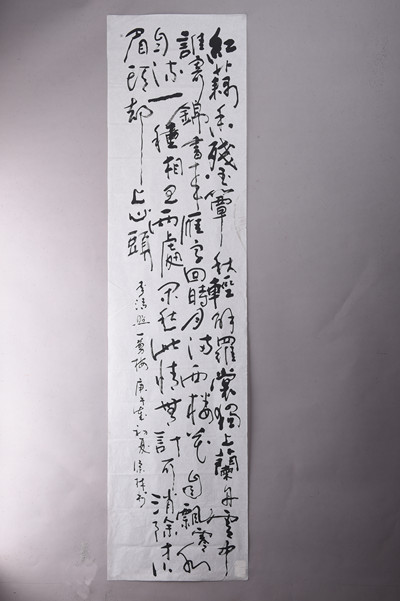 紅藕香殘玉簟秋輕解羅裳獨上蘭舟雲中
誰寄錦書來雁字回時月滿西樓花自飄零水
自流一種相思兩處閑愁此情無計可消除才下
眉頭却上心頭
李清照一剪梅庚子初夏書